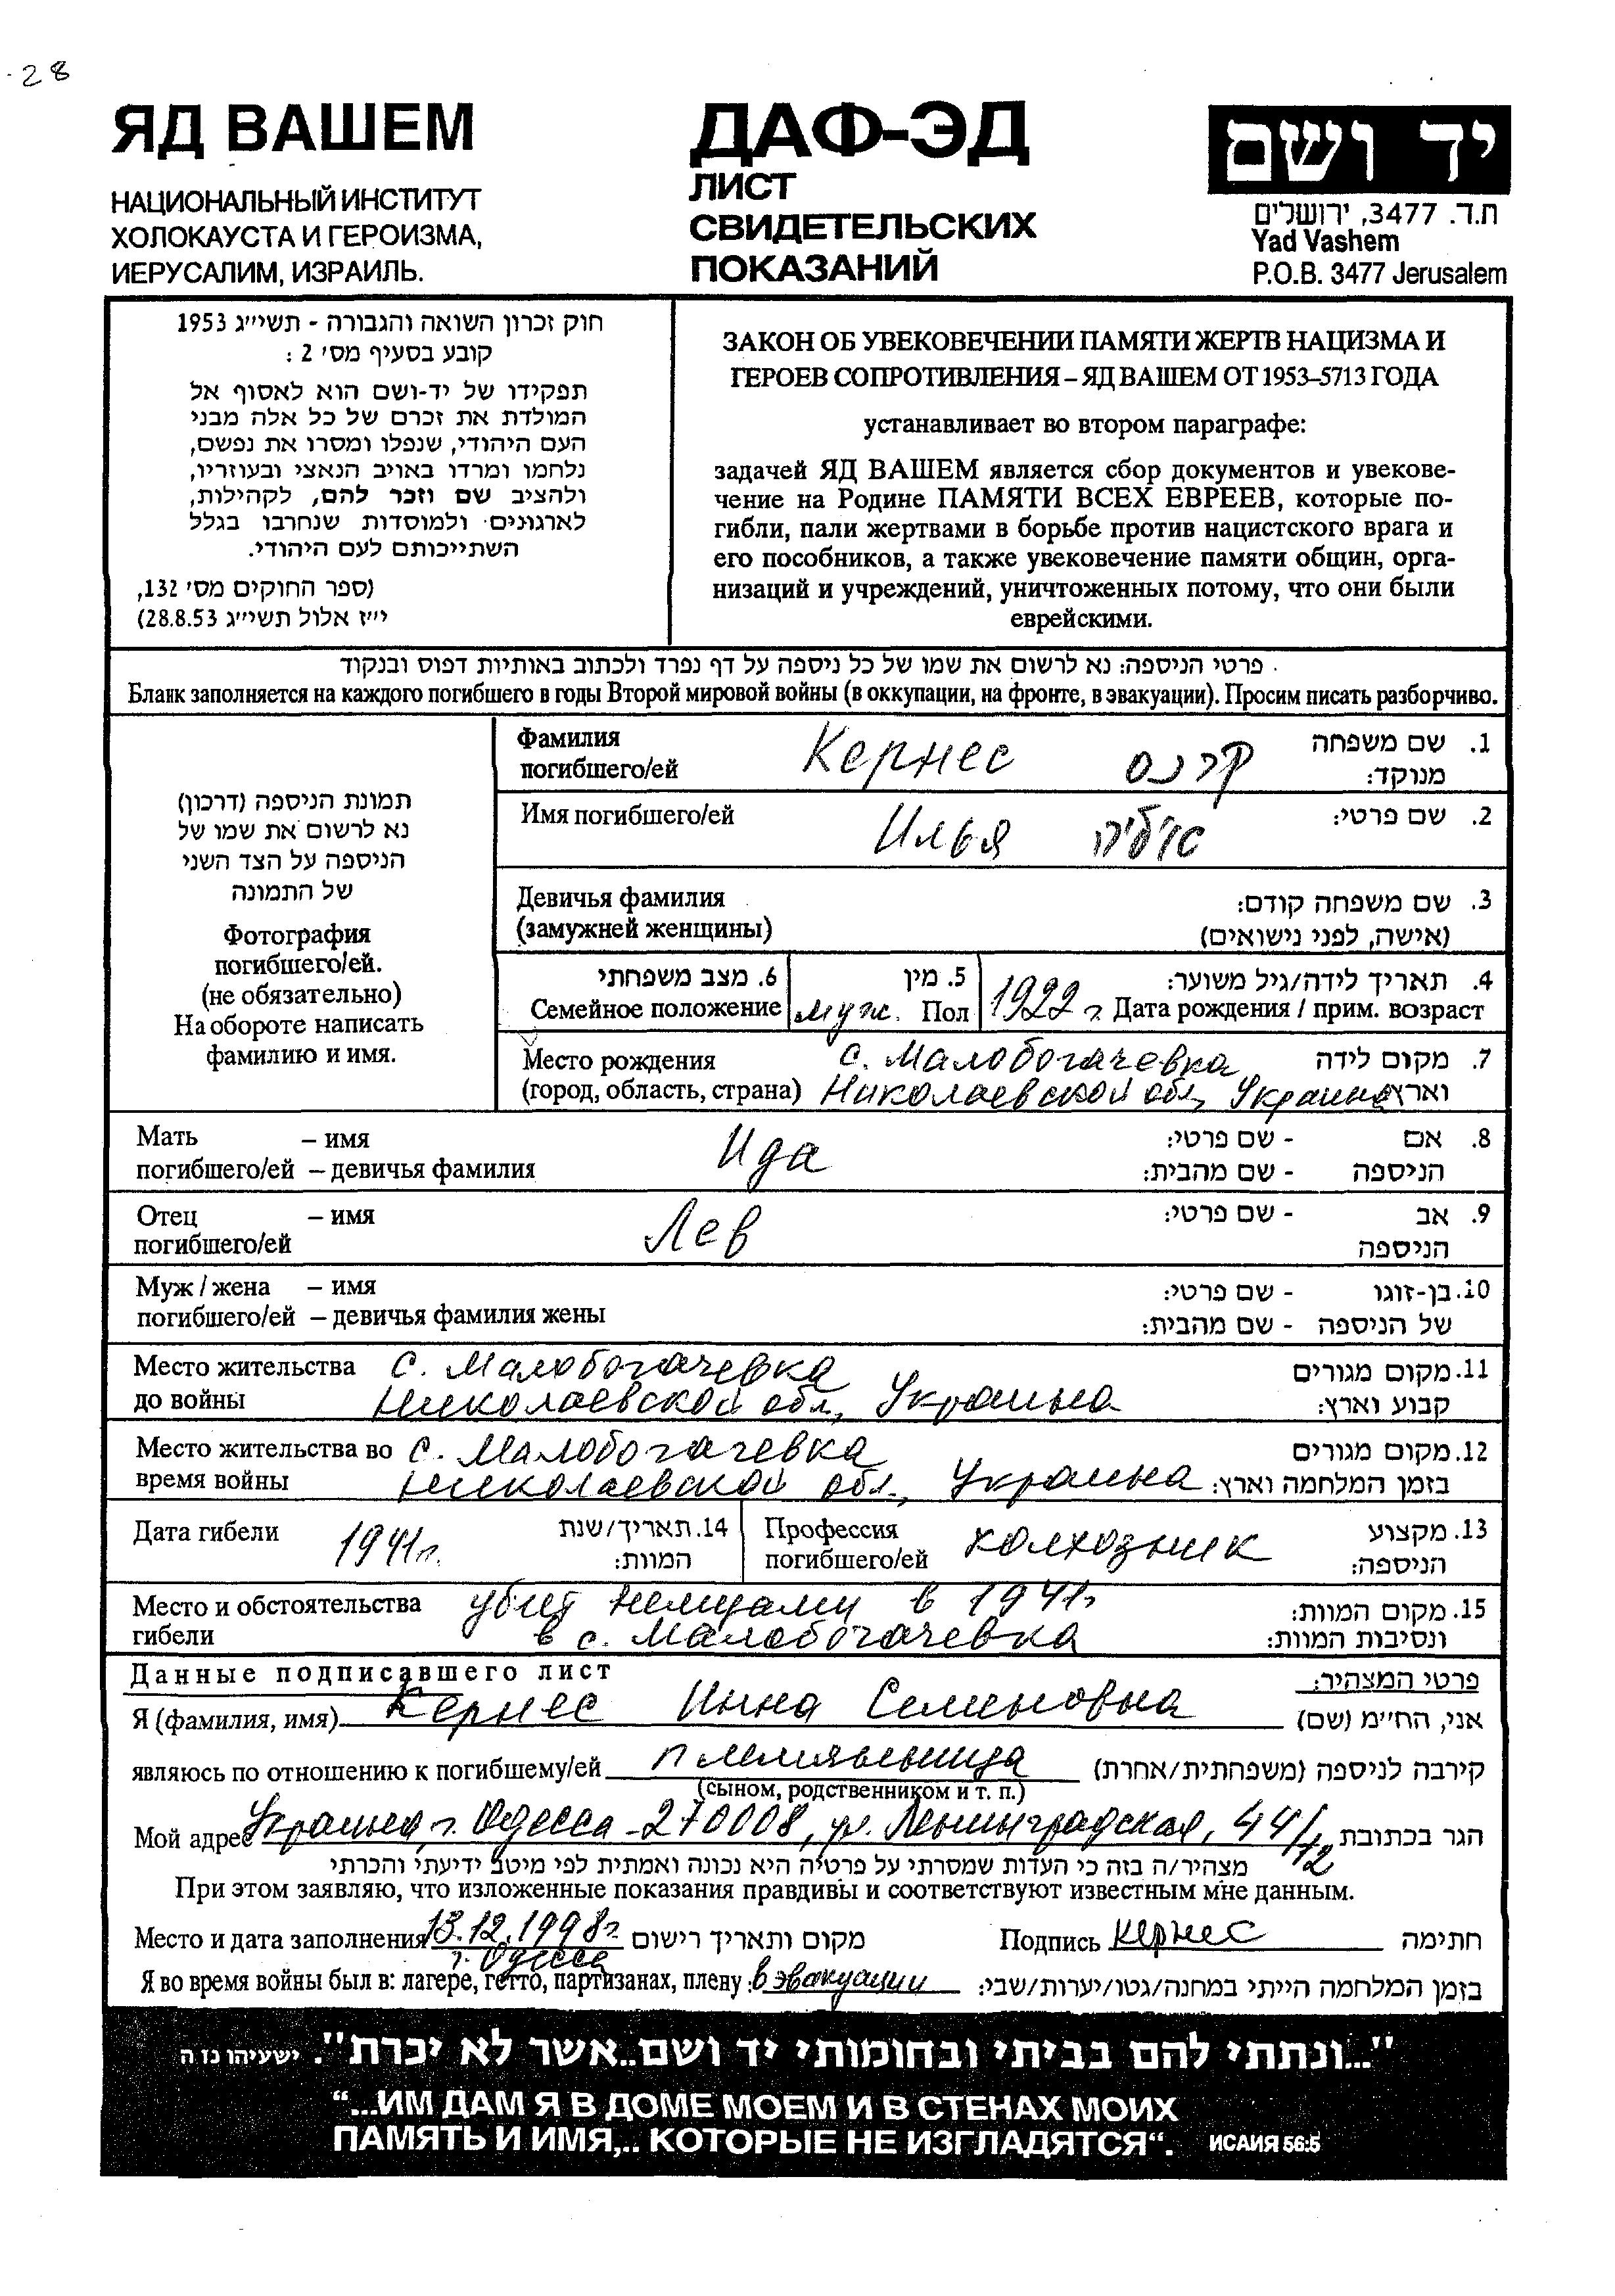 28
ЯД ВАШЕМ
НАЦИОНАЛЬНЫЙ ИНСТИТУТ
ХОЛОКАУСТА И ГЕРОИЗМА,
ИЕРУСАЛИМ, ИЗРАИЛЬ.
ДАФ-ЭД
ЛИСТ
СВИДЕТЕЛЬСКИХ
ПОКАЗАНИЙ
יד ושם
ת.ד. 3477, ירושלים
Yad Vashem
P.O.B. 3477 Jerusalem
חוק זכרון השואה והגבורה - תשי״ג 1953
קובע בסעיף מס׳ 2 :
תפקידו של יד-ושם הוא לאסוף אל
המולדת את זכרם של כל אלה מבני
העם היהודי, שנפלו ומסרו את נפשם,
נלחמו ומרדו באויב הנאצי ובעוזריו,
ולהציב שם וזכר להם, לקהילות,
לארגונים ולמוסדות שנחרבו בגלל
השתייכותם לעם היהודי.
(ספר החוקים מס׳ 132,
י״ז אלול תשי״ג 28.8.53)
ЗАКОН ОБ УВЕКОВЕЧЕНИИ ПАМЯТИ ЖЕРТВ НАЦИЗМА И
ГЕРОЕВ СОПРОТИВЛЕНИЯ – ЯД ВАШЕМ ОТ 1953–5713 ГОДА
устанавливает во втором параграфе:
задачей ЯД ВАШЕМ является сбор документов и увекове-
чение на Родине ПАМЯТИ ВСЕХ ЕВРЕЕВ, которые по-
гибли, пали жертвами в борьбе против нацистского врага и
его пособников, а также увековечение памяти общин, орга-
низаций и учреждений, уничтоженных потому, что они были
еврейскими.
פרטי הניספה: נא לרשום את שמו של כל ניספה על דף נפרד ולכתוב באותיות דפוס ובנקוד
Бланк заполняется на каждого погибшего в годы Второй мировой войны (в оккупации, на фронте, в эвакуации). Просим писать разборчиво.
תמונת הניספה (דרכון)
נא לרשום את שמו של
הניספה על הצד השני
של התמונה
Фотография
погибшего/ей.
(не обязательно)
На обороте написать
фамилию и имя.
Фамилия Кернес קרנס 1. שם משפחה
погибшего/ей מנוקד:
Имя погибшего/ей Илья איליה 2. שם פרטי:
Девичья фамилия 3. שם משפחה קודם:
(замужней женщины) (אישה, לפני נישואים)
6. מצב משפחתי 5. מין 4. תאריך לידה/גיל משוער:
Семейное положение муж. Пол 1922 г. Дата рождения / прим. возраст
Место рождения с. Малобогачевка 7. מקום לידה
(город, область, страна) Николаевской обл, Украина וארץ
Мать – имя Ида 8. אם - שם פרטי:
погибшего/ей – девичья фамилия הניספה - שם מהבית:
Отец – имя Лев 9. אב - שם פרטי:
погибшего/ей הניספה
Муж / жена – имя 10. בן-זוגו - שם פרטי:
погибшего/ей – девичья фамилия жены של הניספה - שם מהבית:
Место жительства с. Малобогачевка 11. מקום מגורים
до войны Николаевской обл, Украина קבוע וארץ:
Место жительства во с. Малобогачевка 12. מקום מגורים
время войны Николаевской обл., Украина בזמן המלחמה וארץ:
Дата гибели 1941г. 14. תאריך/שנת המוות:
Профессия погибшего/ей колхозник 13. מקצוע הניספה:
Место и обстоятельства убит немцами в 1941г 15. מקום המוות:
гибели в с. Малобогачевка ונסיבות המוות:
Данные подписавшего лист פרטי המצהיר:
Я (фамилия, имя) Кернес Инна Семеновна אני, הח״מ (שם)
являюсь по отношению к погибшему/ей племянница קירבה לניספה (משפחתית/אחרת)
(сыном, родственником и т. п.)
Мой адрес Украина, г. Одесса-270008, ул. Ленинградская, 44/12 הגר בכתובת
מצהיר/ה בזה כי העדות שמסרתי על פרטיה היא נכונה ואמתית לפי מיטב ידיעתי והכרתי
При этом заявляю, что изложенные показания правдивы и соответствуют известным мне данным.
Место и дата заполнения 13.12.1998г. מקום ותאריך רישום Подпись Кернес חתימה
г. Одесса
Я во время войны был в: лагере, гетто, партизанах, плену: в эвакуации בזמן המלחמה הייתי במחנה/גטו/יערות/שבי:
"...ונתתי להם בביתי ובחומותי יד ושם..אשר לא יכרת". ישעיהו נו ה
“...ИМ ДАМ Я В ДОМЕ МОЕМ И В СТЕНАХ МОИХ
ПАМЯТЬ И ИМЯ,.. КОТОРЫЕ НЕ ИЗГЛАДЯТСЯ“. ИСАИЯ 56:5